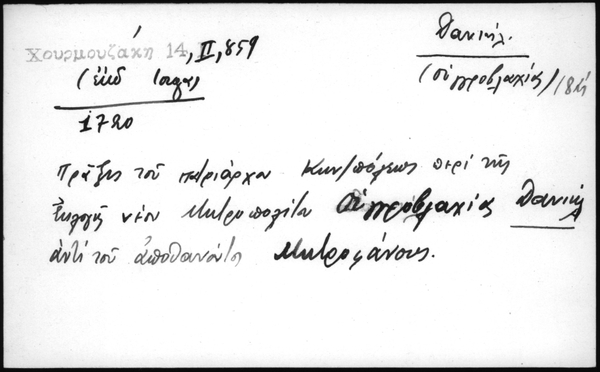 Χουρμουζάκη 14, II, 859
Δανιήλ.
(ἐκδ Ιοργα)
(οὐγγροβλαχίας)
1720
Πρᾶξις τοῦ πατριάρχου Κων/πόλεως περί τῆς
ἐκλογῆς νέου Μητροπολίτου Οὐγγροβλαχίας Δανιήλ
ἀντί τοῦ ἀποθανόντος Μητροφάνους.